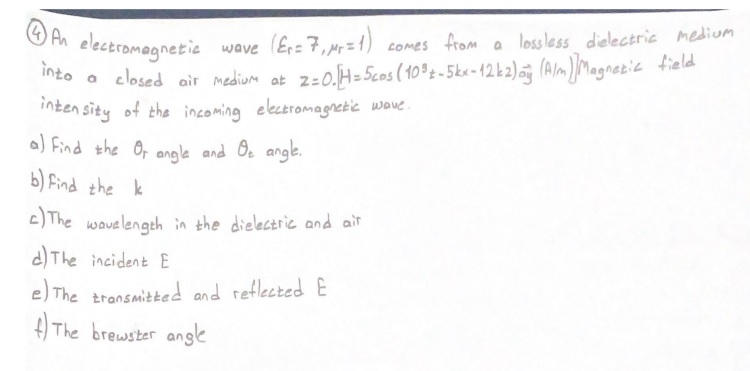 ④ An electromagnetic wave (εr=7, μr=1) comes from a lossless dielectric medium
into a closed air medium at z=0. [H=5cos(10⁹t-5kx-12kz) a⃗y (A/m)] Magnetic field
intensity of the incoming electromagnetic wave.
a) Find the θr angle and θt angle.
b) Find the k
c) The wavelength in the dielectric and air
d) The incident E
e) The transmitted and reflected E
f) The brewster angle